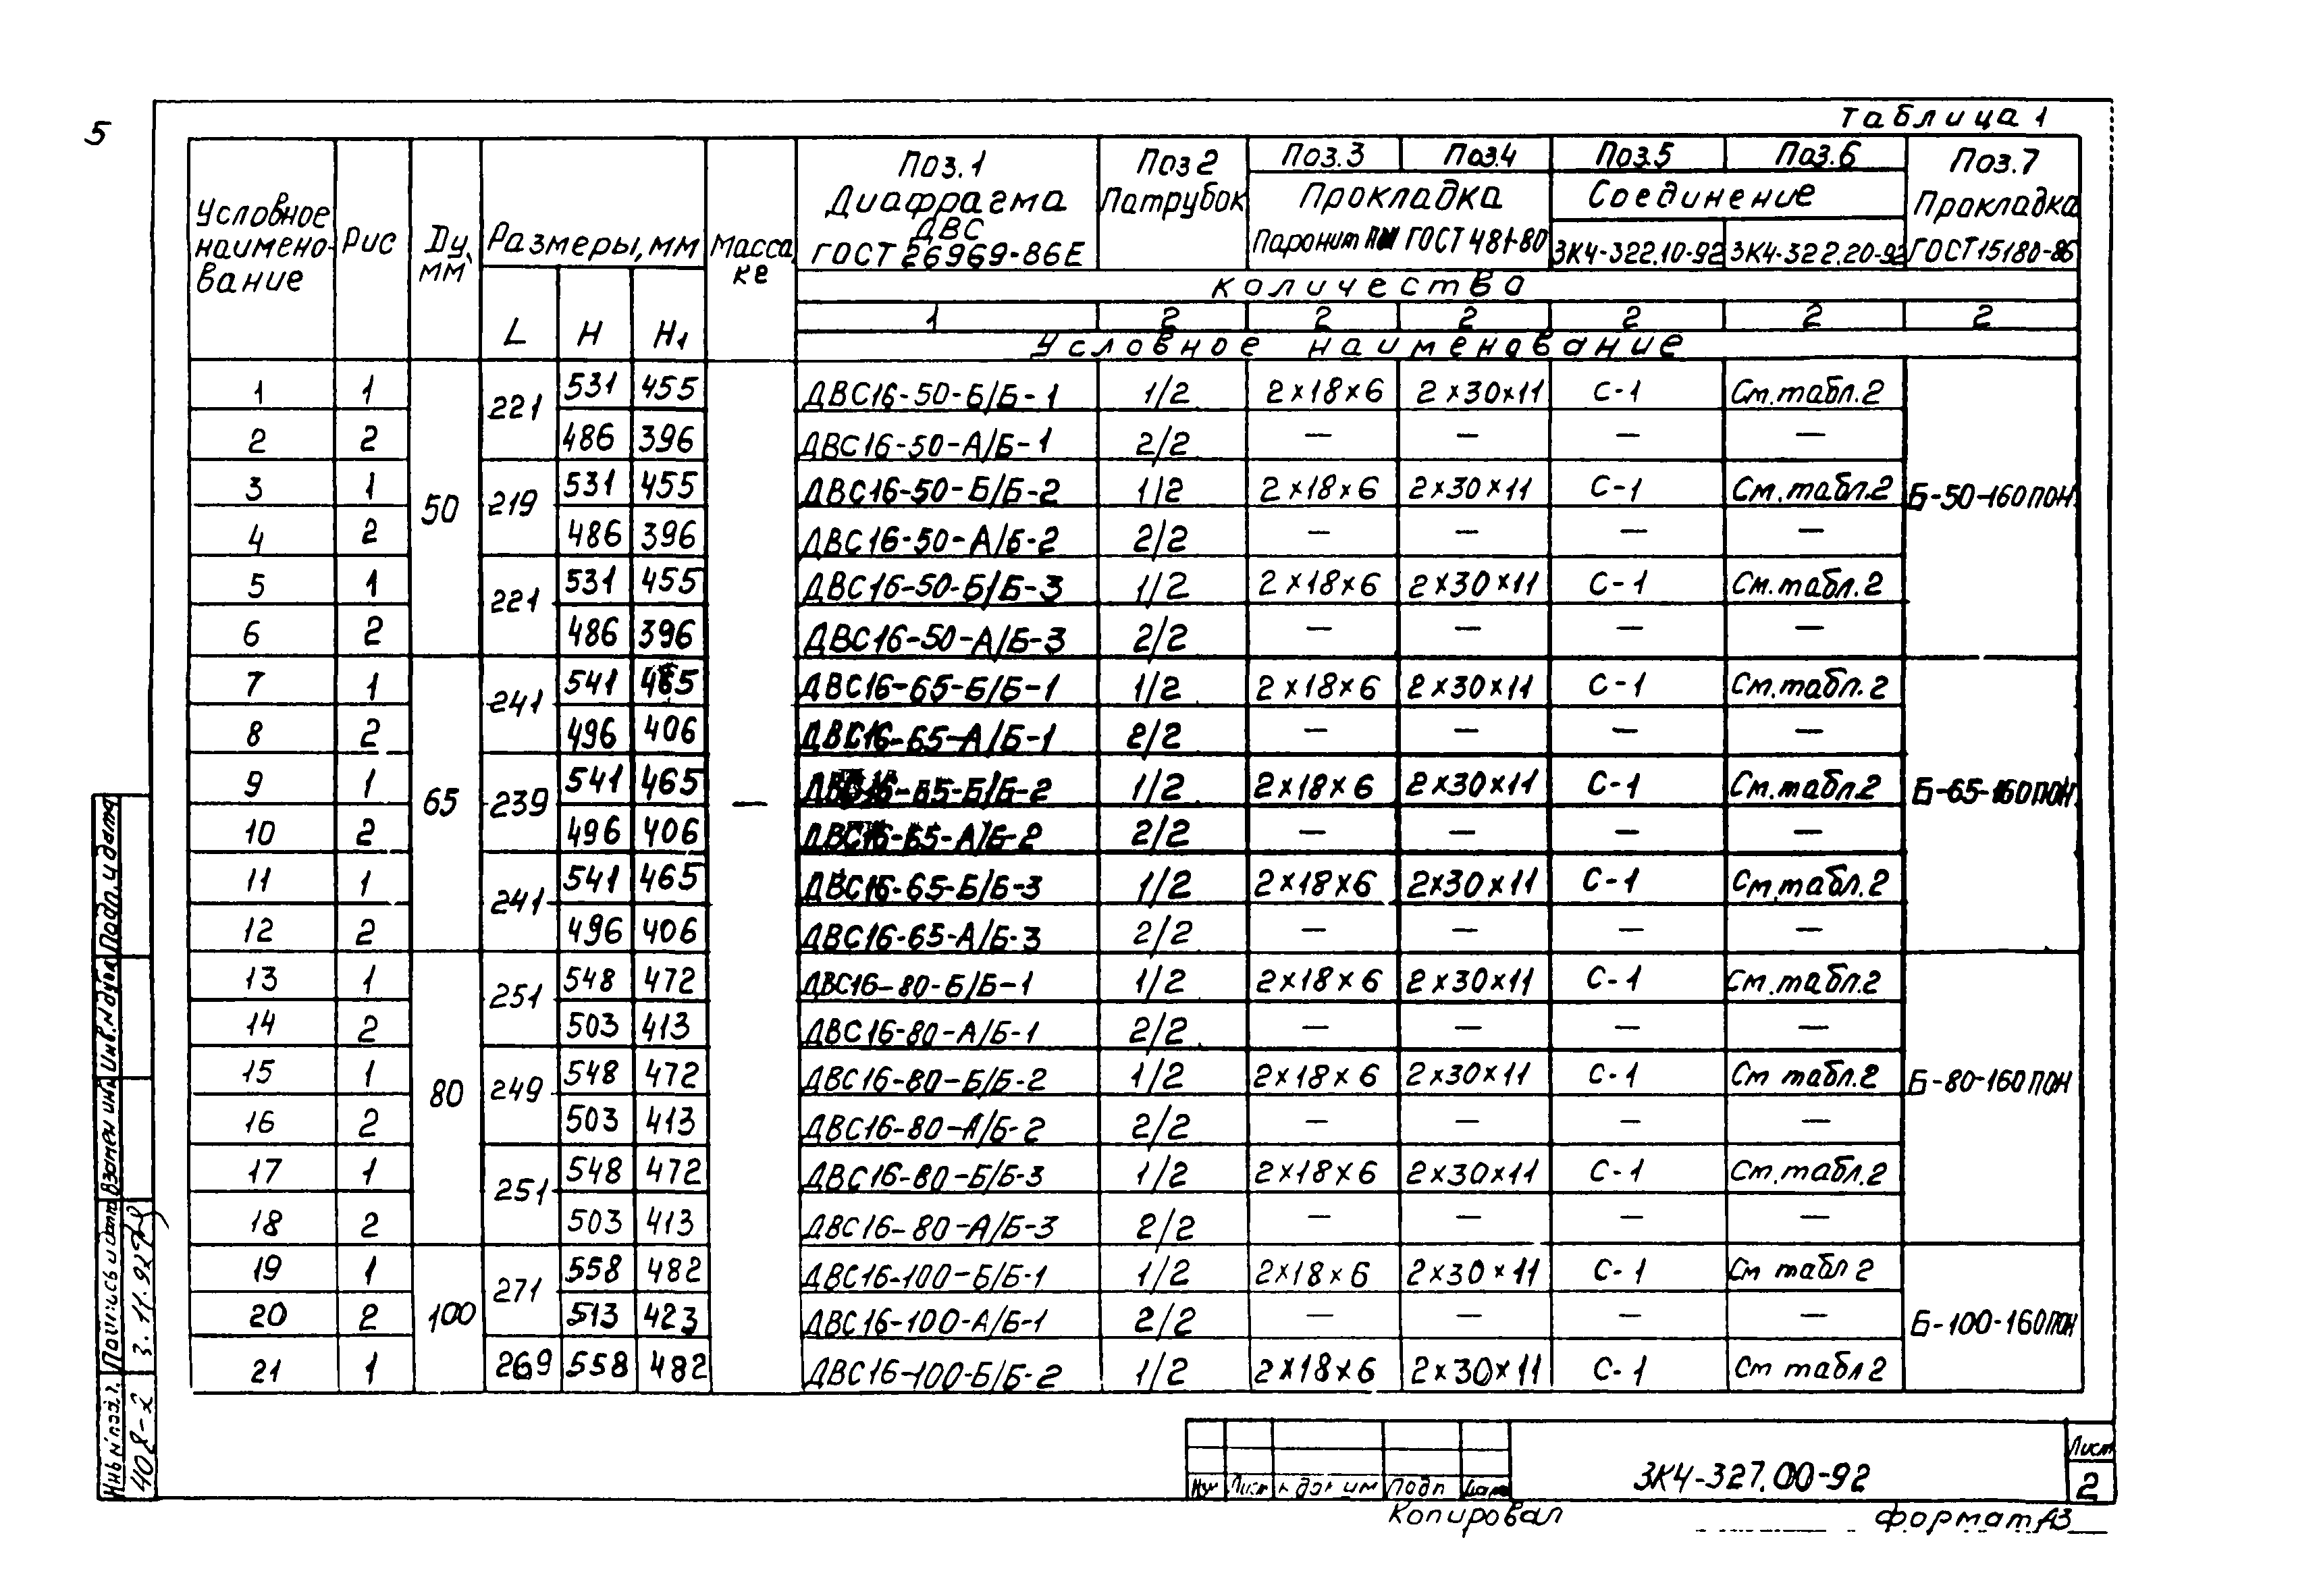 5
Таблица 1
Условное наимено-вание | Рис | Dу, мм | Размеры, мм | Масса, кг | Поз.1 Диафрагма ДВС ГОСТ 26969-86Е | Поз 2 Патрубок | Поз.3 | Поз.4 | Поз.5 | Поз.6 | Поз.7 Прокладка ГОСТ 15180-86
Прокладка Паронит ГОСТ 481-80 | Соединение
ЗК4-322.10-92 | ЗК4-322.20-92
L | H | H1
количество
1 | 2 | 2 | 2 | 2 | 2 | 2
Условное наименование
1 | 1 | 50 | 221 | 531 | 455 | — | ДВС16-50-Б/Б-1 | 1/2 | 2×18×6 | 2×30×11 | С-1 | См.табл.2 | Б-50-160ПОН
2 | 2 | 486 | 396 | ДВС16-50-А/Б-1 | 2/2 | — | — | — | —
3 | 1 | 219 | 531 | 455 | ДВС16-50-Б/Б-2 | 1/2 | 2×18×6 | 2×30×11 | С-1 | См.табл.2
4 | 2 | 486 | 396 | ДВС16-50-А/Б-2 | 2/2 | — | — | — | —
5 | 1 | 221 | 531 | 455 | ДВС16-50-Б/Б-3 | 1/2 | 2×18×6 | 2×30×11 | С-1 | См.табл.2
6 | 2 | 486 | 396 | ДВС16-50-А/Б-3 | 2/2 | — | — | — | —
7 | 1 | 65 | 241 | 541 | 465 | ДВС16-65-Б/Б-1 | 1/2 | 2×18×6 | 2×30×11 | С-1 | См.табл.2 | Б-65-160ПОН
8 | 2 | 496 | 406 | ДВС16-65-А/Б-1 | 2/2 | — | — | — | —
9 | 1 | 239 | 541 | 465 | ДВС16-65-Б/Б-2 | 1/2 | 2×18×6 | 2×30×11 | С-1 | См.табл.2
10 | 2 | 496 | 406 | ДВС16-65-А/Б-2 | 2/2 | — | — | — | —
11 | 1 | 241 | 541 | 465 | ДВС16-65-Б/Б-3 | 1/2 | 2×18×6 | 2×30×11 | С-1 | См.табл.2
12 | 2 | 496 | 406 | ДВС16-65-А/Б-3 | 2/2 | — | — | — | —
13 | 1 | 80 | 251 | 548 | 472 | ДВС16-80-Б/Б-1 | 1/2 | 2×18×6 | 2×30×11 | С-1 | См.табл.2 | Б-80-160ПОН
14 | 2 | 503 | 413 | ДВС16-80-А/Б-1 | 2/2 | — | — | — | —
15 | 1 | 249 | 548 | 472 | ДВС16-80-Б/Б-2 | 1/2 | 2×18×6 | 2×30×11 | С-1 | См табл.2
16 | 2 | 503 | 413 | ДВС16-80-А/Б-2 | 2/2 | — | — | — | —
17 | 1 | 251 | 548 | 472 | ДВС16-80-Б/Б-3 | 1/2 | 2×18×6 | 2×30×11 | С-1 | См.табл.2
18 | 2 | 503 | 413 | ДВС16-80-А/Б-3 | 2/2 | — | — | — | —
19 | 1 | 100 | 271 | 558 | 482 | ДВС16-100-Б/Б-1 | 1/2 | 2×18×6 | 2×30×11 | С-1 | См табл 2 | Б-100-160ПОН
20 | 2 | 513 | 423 | ДВС16-100-А/Б-1 | 2/2 | — | — | — | —
21 | 1 | 269 | 558 | 482 | ДВС16-100-Б/Б-2 | 1/2 | 2×18×6 | 2×30×11 | С-1 | См табл 2
Подп. и дата
Инв.N дубл
Взамен инв
Подпись и дата
3.11.92
Инв N подл.
408-2
Лист
Подп
ЗК4-327.00-92
Лист
2
Копировал
Формат А3